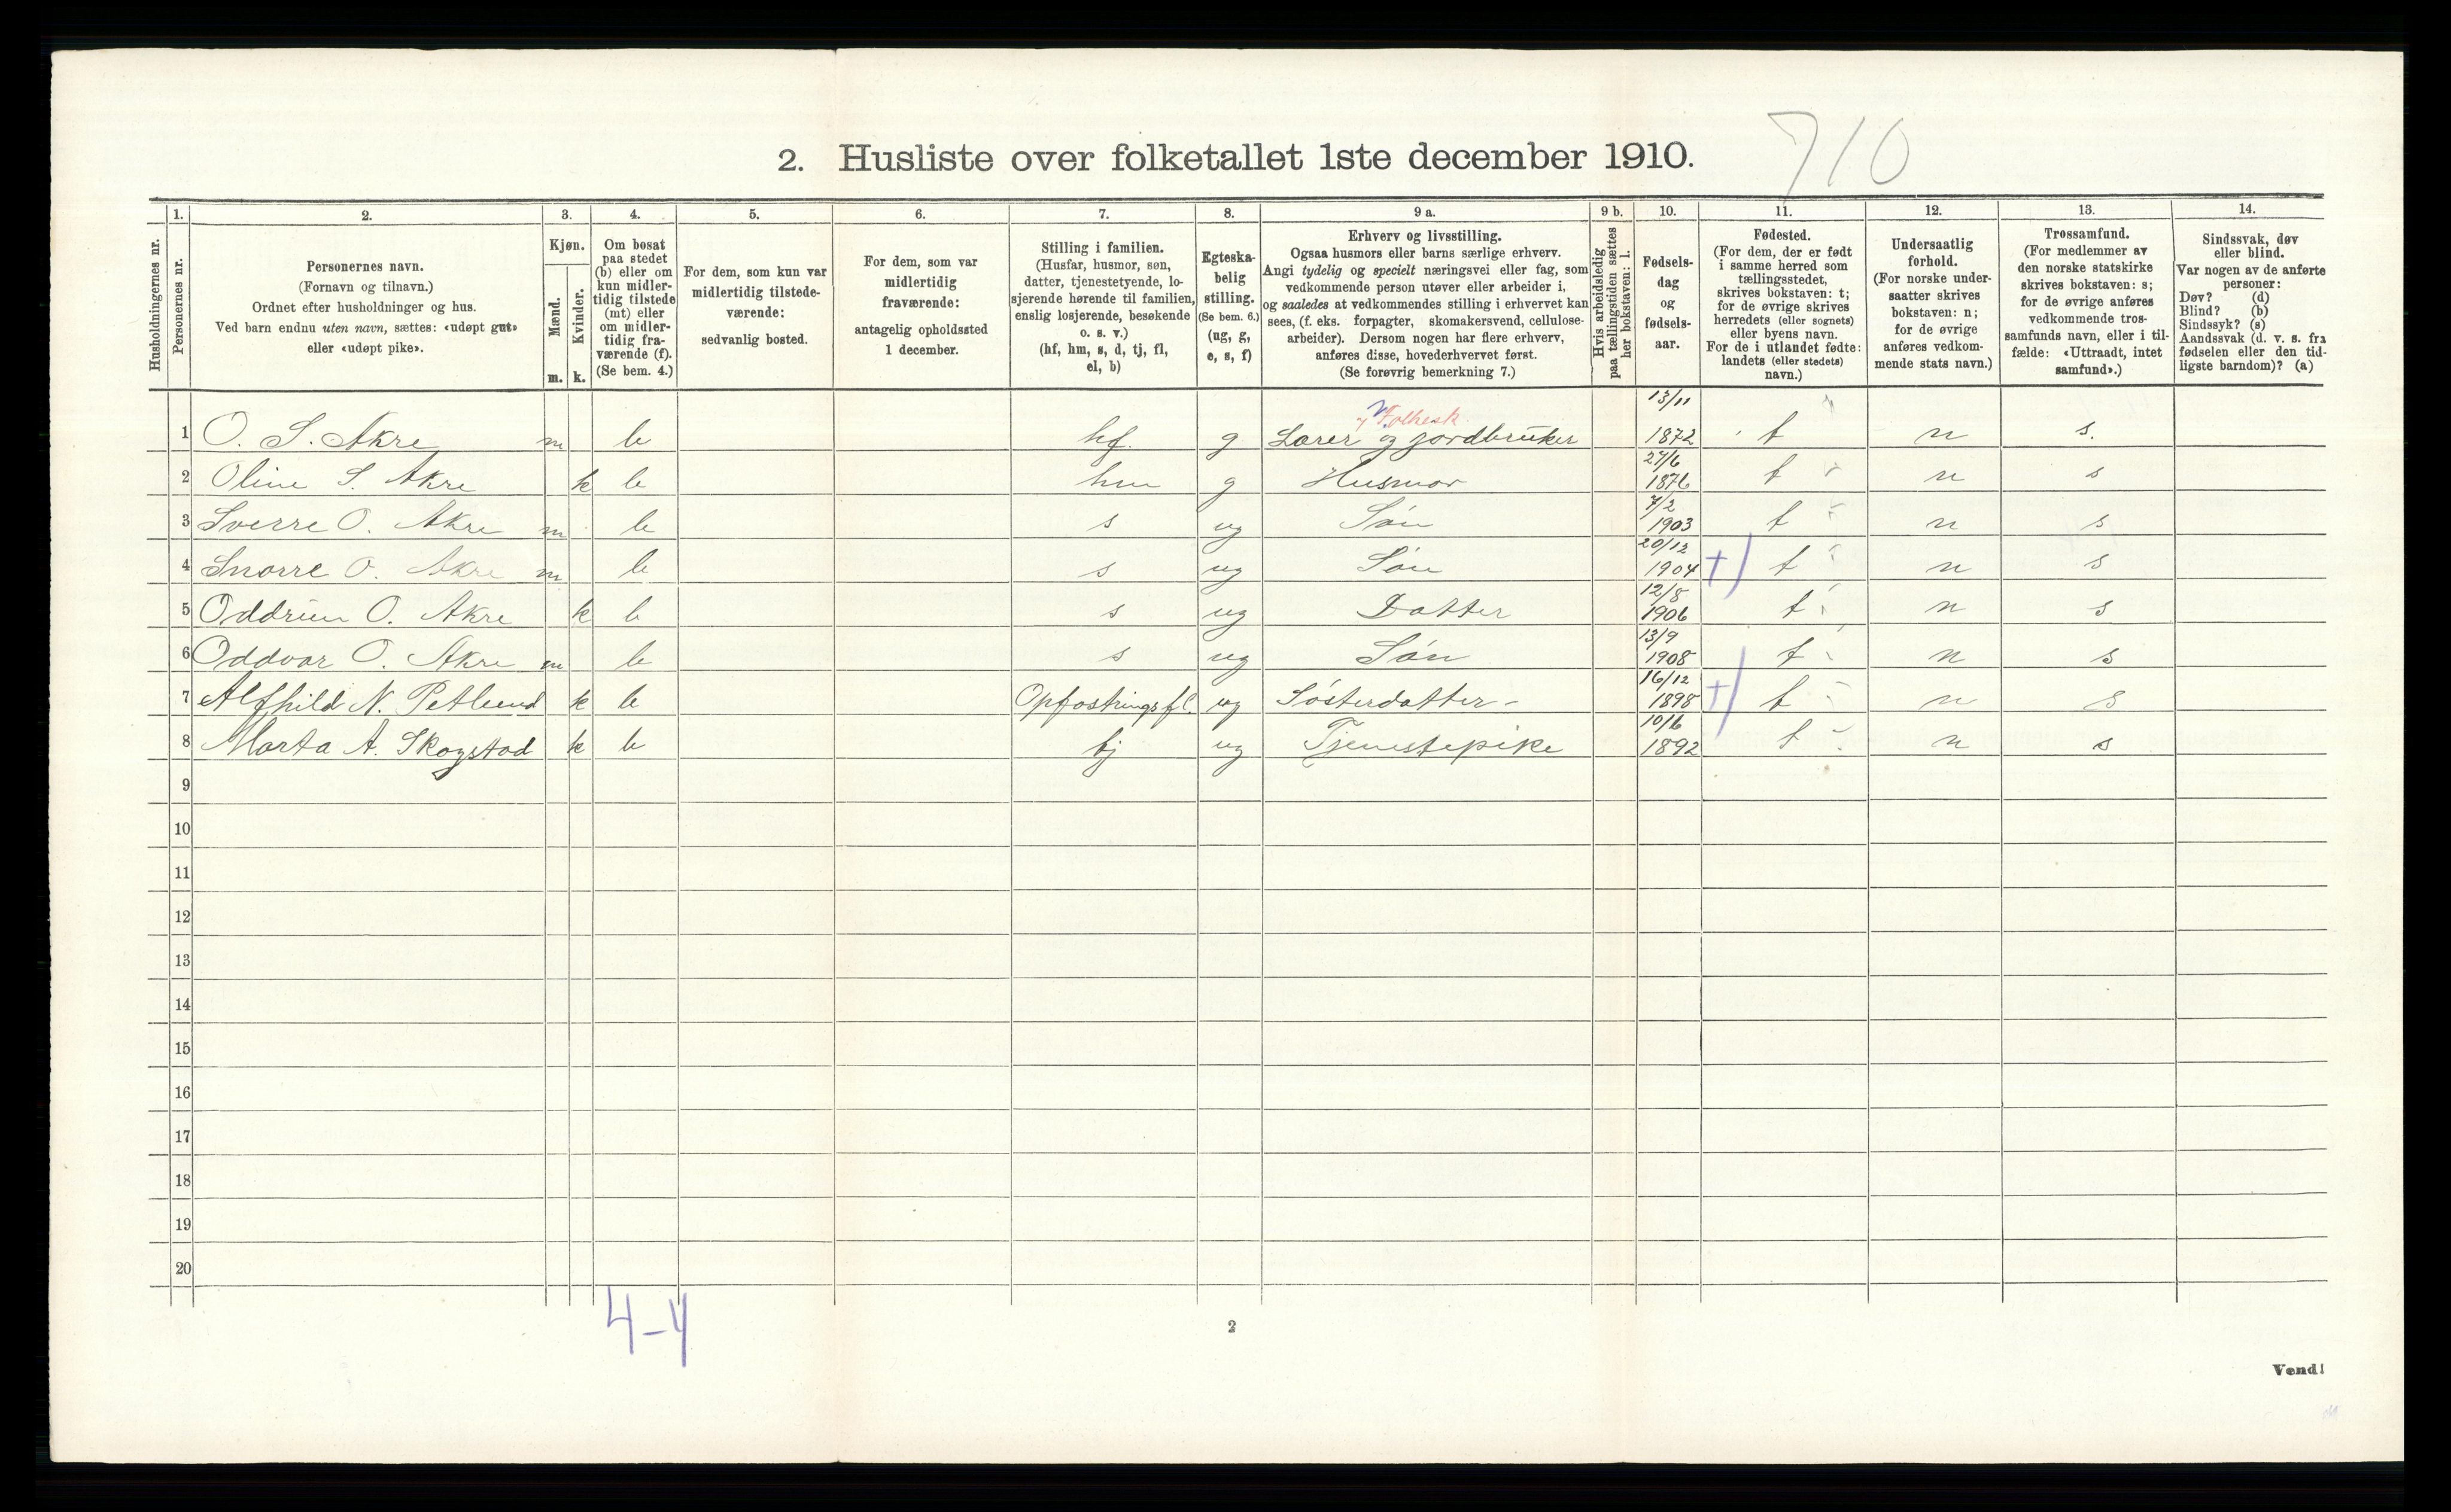 710
2. Husliste over folketallet 1ste december 1910.
Husholdningernes nr.
1. 2. 3. 4. 5. 6. 7. 8. 9 a. 9 b. 10. 11. 12. 13. 14.
Personernes nr.
Personernes navn.
(Fornavn og tilnavn.)
Ordnet efter husholdninger og hus.
Ved barn endnu uten navn, sættes: «udøpt gut»
eller «udøpt pike».
Kjøn.
Mænd.
Kvinder.
m. k.
Om bosat
paa stedet
(b) eller om
kun midler-
tidig tilstede
(mt) eller
om midler-
tidig fra-
værende (f).
(Se bem. 4.)
For dem, som kun var
midlertidig tilstede-
værende:
sedvanlig bosted.
For dem, som var
midlertidig
fraværende:
antagelig opholdssted
1 december.
Stilling i familien.
(Husfar, husmor, søn,
datter, tjenestetyende, lo-
sjerende hørende til familien,
enslig losjerende, besøkende
o. s. v.)
(hf, hm, s, d, tj, fl,
el, b)
Egteska-
belig
stilling.
(Se bem. 6.)
(ug, g,
e, s, f)
Erhverv og livsstilling.
Ogsaa husmors eller barns særlige erhverv.
Angi tydelig og specielt næringsvei eller fag, som
vedkommende person utøver eller arbeider i,
og saaledes at vedkommendes stilling i erhvervet kan
sees, (f. eks. forpagter, skomakersvend, cellulose-
arbeider). Dersom nogen har flere erhverv,
anføres disse, hovederhvervet først.
(Se forøvrig bemerkning 7.)
Hvis arbeidsledig
paa tællingstiden sættes
her bokstaven: l.
Fødsels-
dag
og
fødsels-
aar.
Fødested.
(For dem, der er født
i samme herred som
tællingsstedet,
skrives bokstaven: t;
for de øvrige skrives
herredets (eller sognets)
eller byens navn.
For de i utlandet fødte:
landets (eller stedets)
navn.)
Undersaatlig
forhold.
(For norske under-
saatter skrives
bokstaven: n;
for de øvrige
anføres vedkom-
mende stats navn.)
Trossamfund.
(For medlemmer av
den norske statskirke
skrives bokstaven: s;
for de øvrige anføres
vedkommende tros-
samfunds navn, eller i til-
fælde: «Uttraadt, intet
samfund».)
Sindssvak, døv
eller blind.
Var nogen av de anførte
personer:
Døv? (d)
Blind? (b)
Sindssyk? (s)
Aandssvak (d. v. s. fra
fødselen eller den tid-
ligste barndom)? (a)
Folkesk. 13/11
1 O. S. Akre m b hf. g Lærer og jordbruker 1872 t n s.
27/6
2 Oline S. Akre k b hm g Husmor 1876 t n s
7/2
3 Sverre O. Akre m b s ug Søn 1903 t n s
20/12
4 Snorre O. Akre m b s ug Søn 1904 t n s
12/8
5 Oddrun O. Akre k b s ug Datter 1906 t n s
13/9
6 Oddvar O. Akre m b s ug Søn 1908 t n s
16/12
7 Alfhild N. Petlund k b Opfostringsf. ug Søsterdatter - 1898 t n s
10/6
8 Marta A. Skogstad k b tj ug Tjenestepike 1892 t n s
9
10
11
12
13
14
15
16
17
18
19
20
4-4
2
Vend!